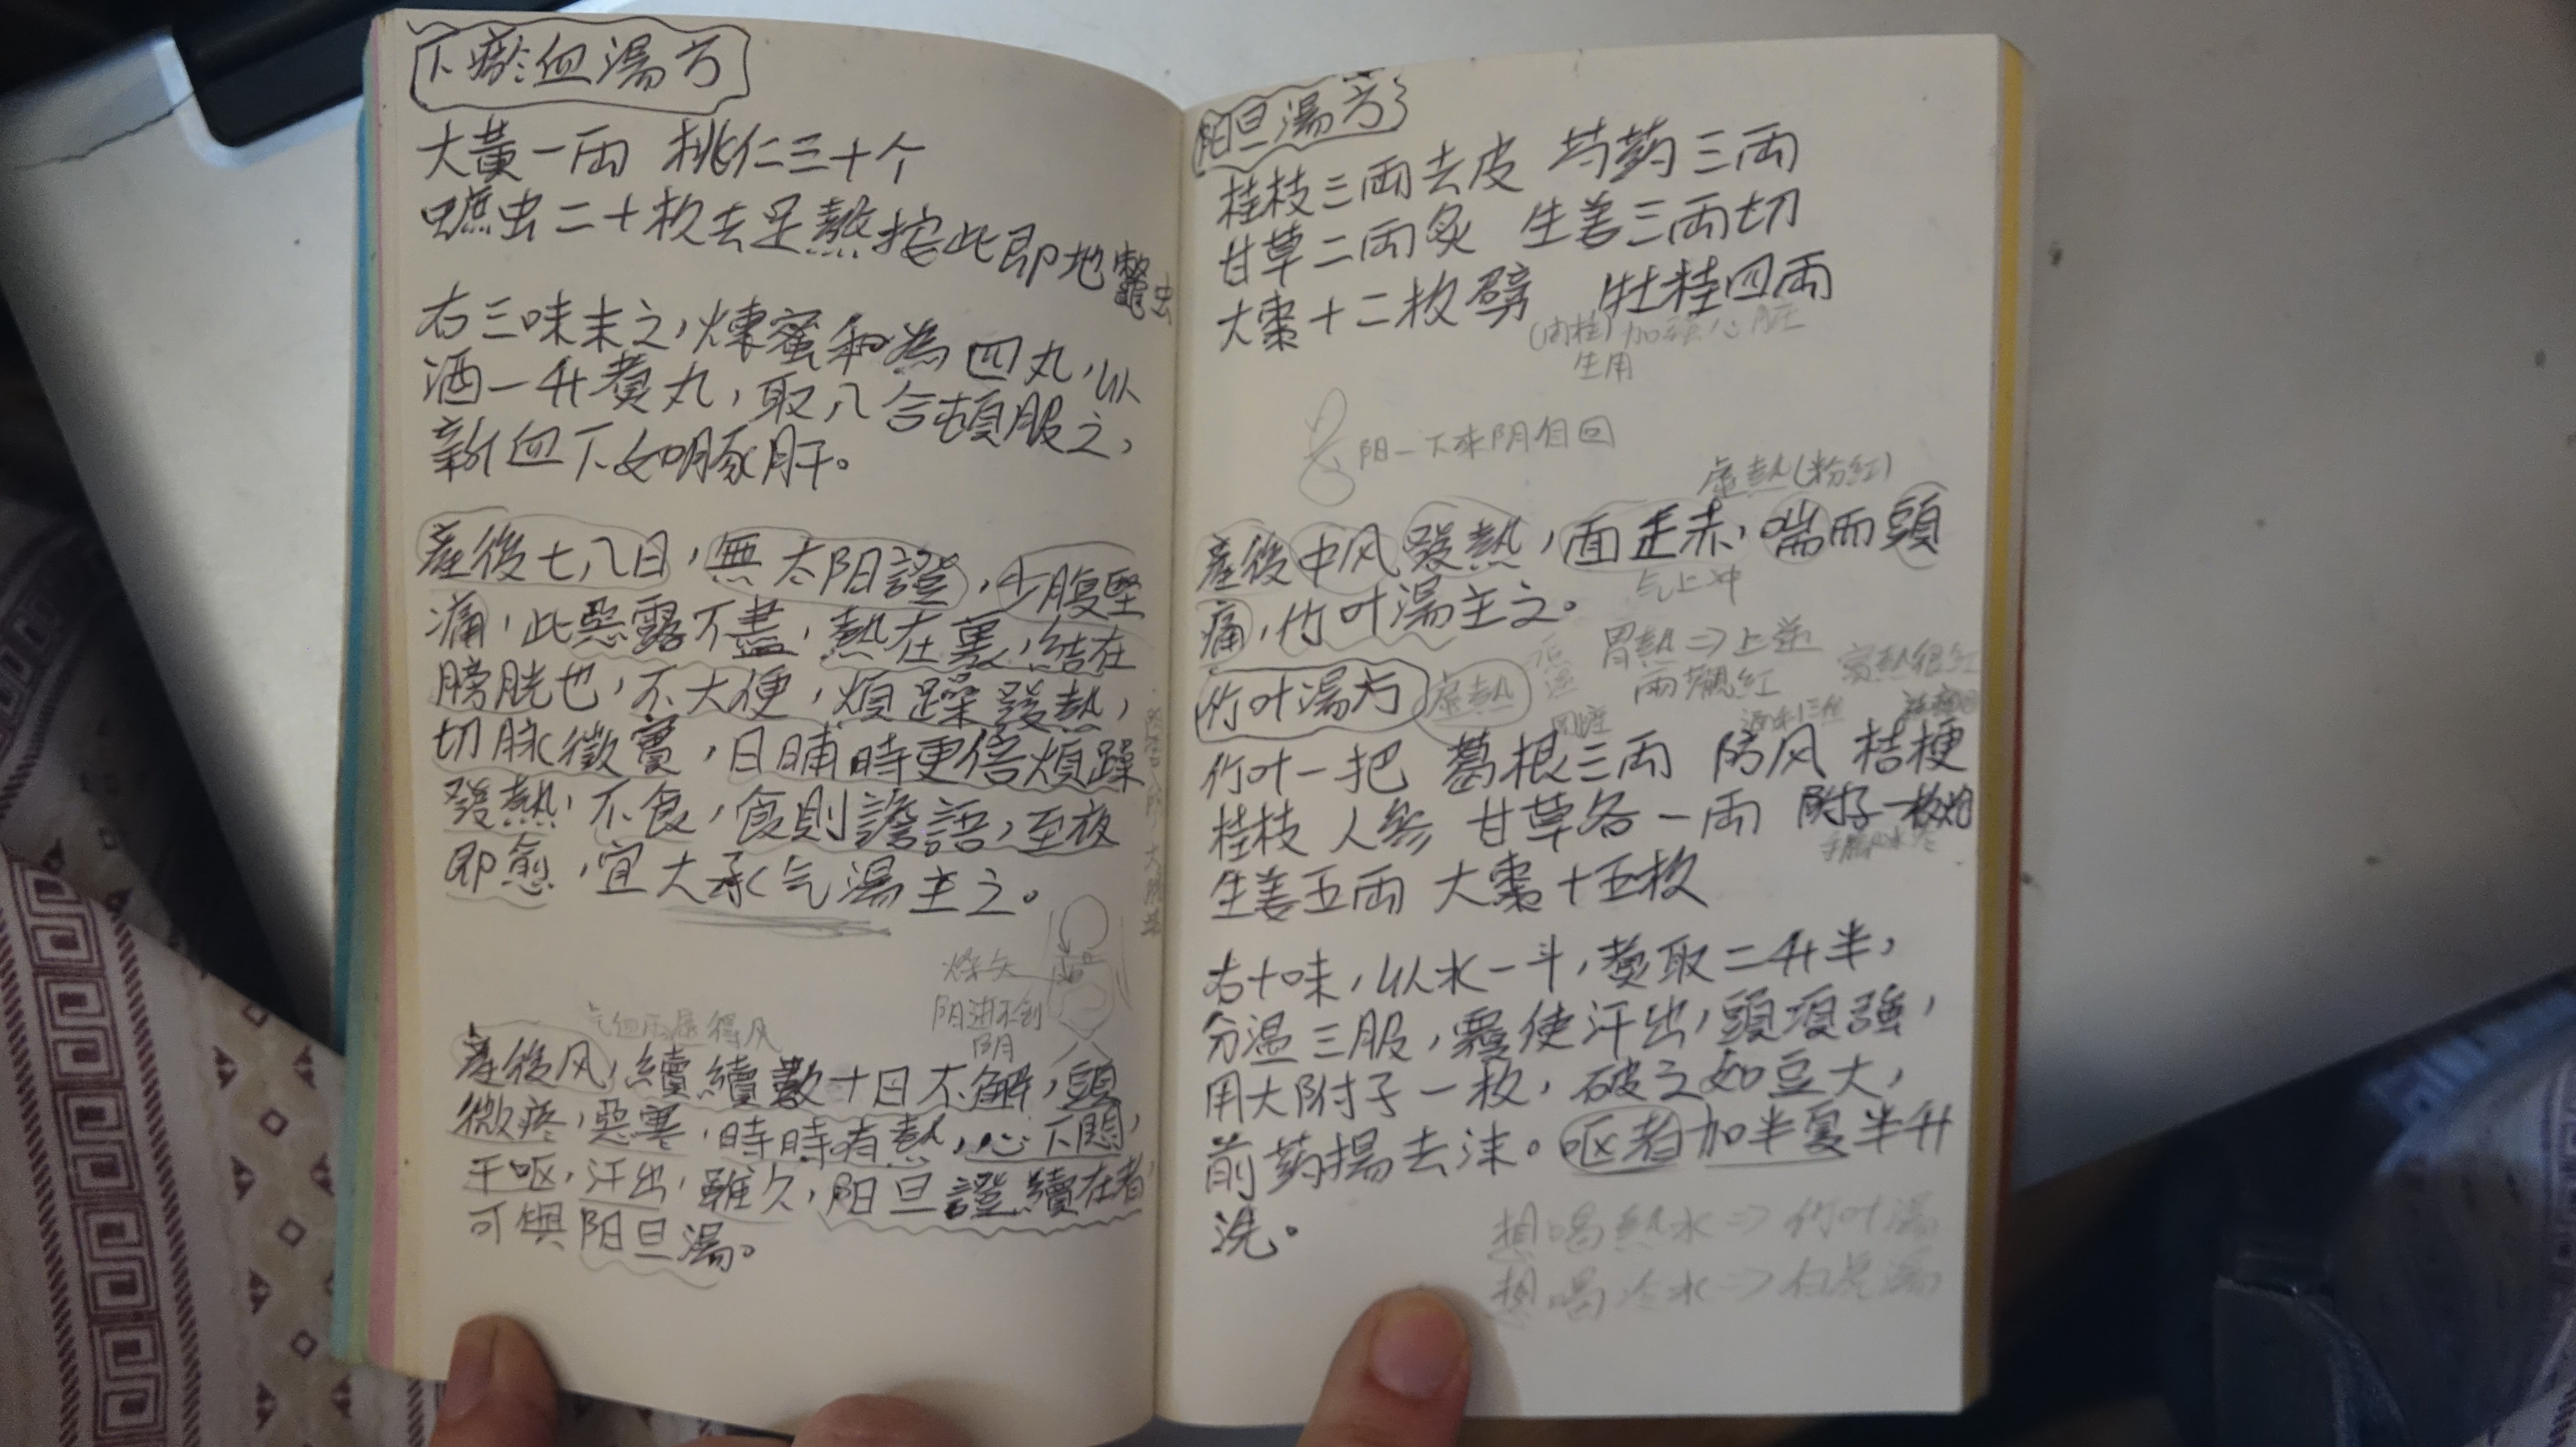 下瘀血湯方
大黃一兩 桃仁三十个
蟅虫二十枚去足熬按此即地鱉虫
右三味末之,煉蜜和為四丸,以
酒一升煑丸,取八合頓服之,
新血下如豚肝。
產後七八日,無太阳證,少腹堅
痛,此惡露不盡,熱在裏,結在
膀胱也,不大便,煩躁發熱,
切脉微實,日晡時更倍煩躁
發熱,不食,食則譫語,至夜
即愈,宜大承气湯主之。
燥矢
阳进不到
阴
气血兩虛得风
產後风,續續數十日不解,頭
微疼,惡寒,時時有熱,心下悶,
干呕,汗出,雖久,阳旦證續在者,
可與阳旦湯。
阳旦湯方
桂枝三兩去皮 芍药三兩
甘草二兩炙 生姜三兩切
大棗十二枚劈 牡桂四兩
(肉桂)加強心脏
生用
阳一下来阴自回
虛熱(粉紅)
產後中风發熱,面正赤,喘而頭
气上冲
痛,竹叶湯主之。
胃熱⇒上逆
兩顴紅
竹叶湯方 虛熱
竹叶一把 葛根三兩 防风 桔梗
桂枝 人参 甘草各一兩 附子一枚炮
生姜五兩 大棗十五枚
右十味,以水一斗,煑取二升半,
分温三服,覆使汗出,頭項強,
用大附子一枚,破之如豆大,
前药揚去沫。呕者加半夏半升
洗。
想喝熱水⇒竹叶湯
想喝冷水⇒白虎湯